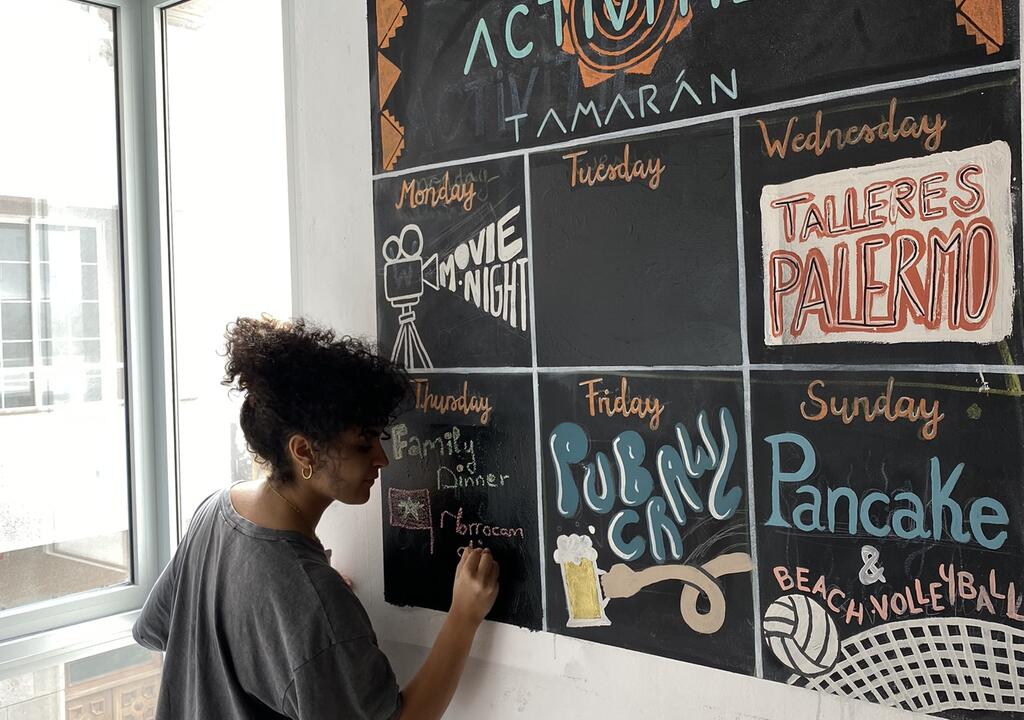 ACTIVITIE
TAMARÁN
Monday
MOVIE
NIGHT
Tuesday
Wednesday
TALLERES
PALERMO
Thursday
Family
Dinner
Morrocan
Friday
PUB
CRAWL
Sunday
Pancake
&
BEACH VOLLEYBALL